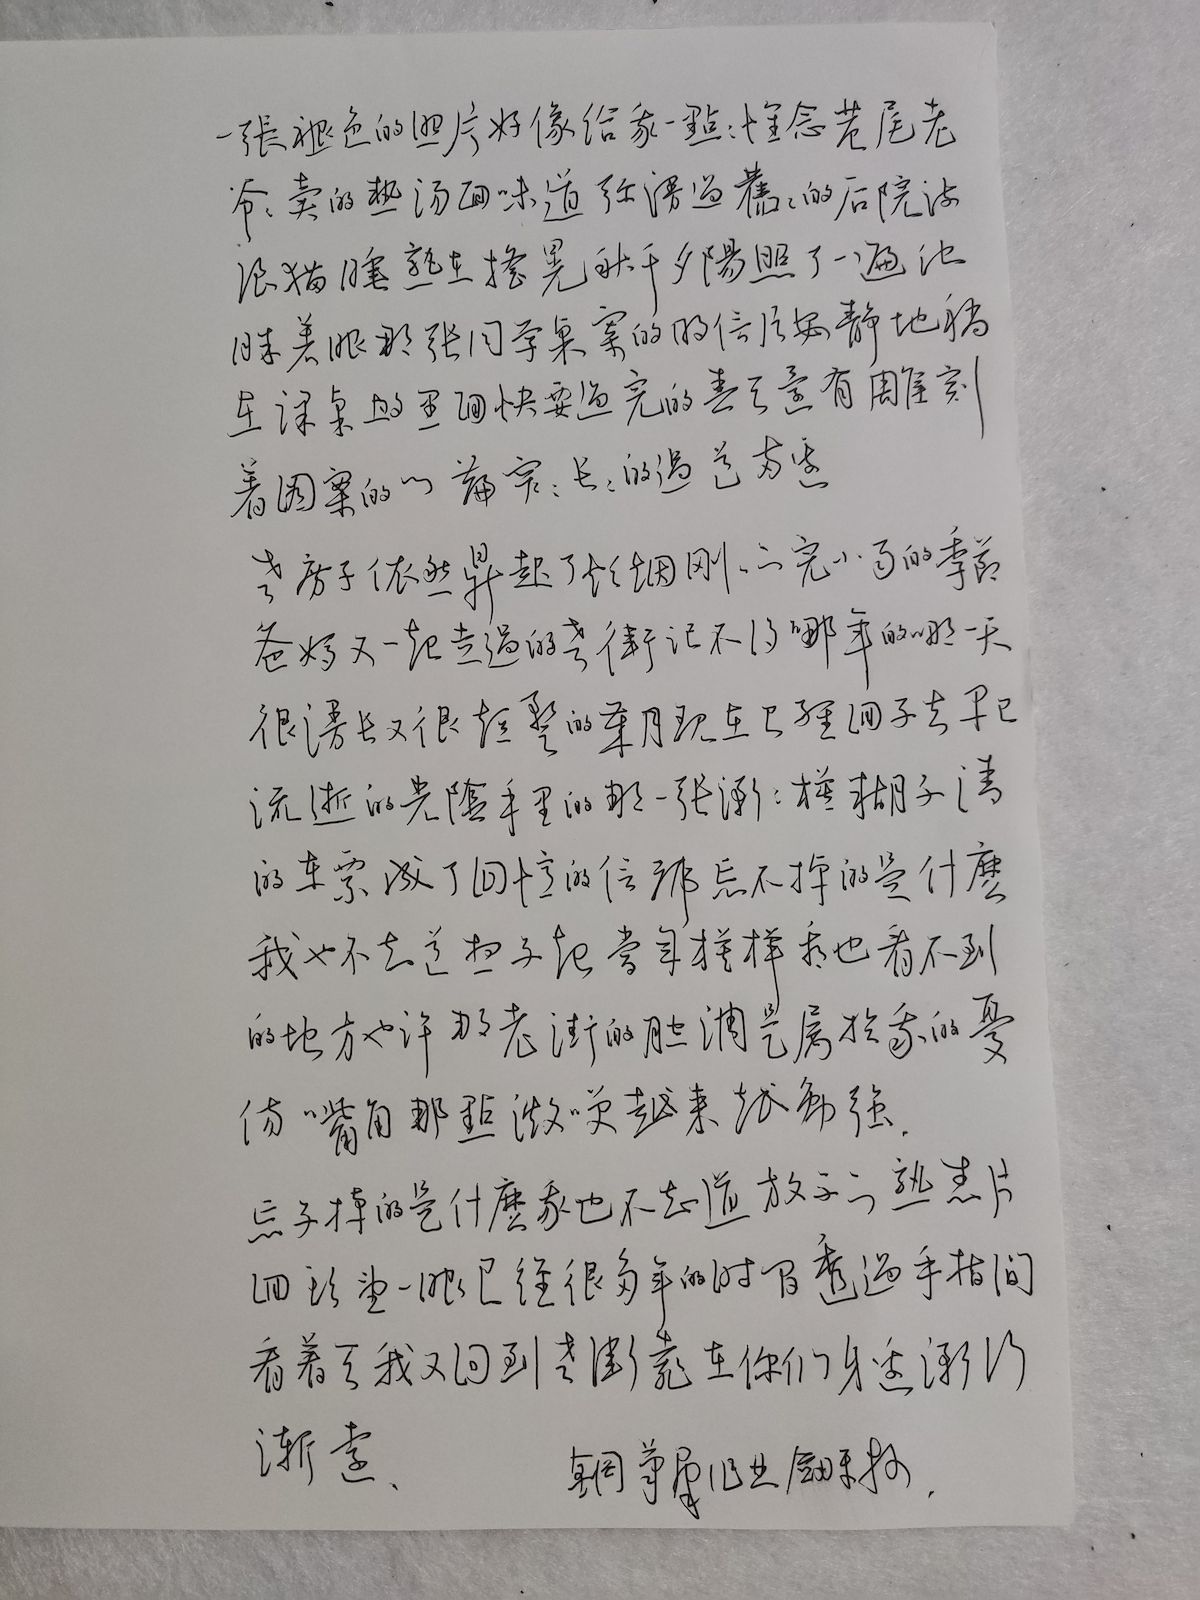 一張褪色的照片好像给我一點:怀念巷尾老
爷:卖的热汤面味道弥漫過舊:的后院流
浪猫睡熟在摇晃秋千夕陽照了一遍他
眯着眼那张同学桌案的明信片安静地躺
在课桌的里面快要過完的春天還有雕刻
着图案的门簾窄:长:的過道旁边
老房子依然昇起了炊烟刚:下完小雨的季節
爸妈又一起走過的老街记不得哪年的哪一天
很漫长又很短暫的葉月现在已經回不去早已
流逝的光陰手里的那一张渐:模糊不清
的车票成了回憶的信號忘不掉的是什麽
我也不知道想不起當年模样我也看不到
的地方也许那老街的腔调是属於我的憂
伤嘴角那點微笑越来越勉强.
忘不掉的是什麽我也不知道放不下熟悉片
回头望一眼已经很多年的时間透過手指間
看着天我又回到老街靠在你们身边渐行
渐遠、
鋼筆